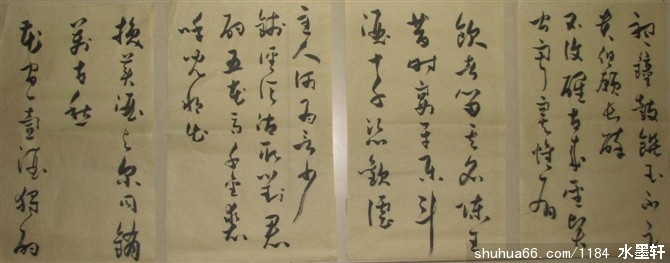 鐘鼓饌玉不足
貴但願長醉
不復醒古來聖賢
皆寂寞惟有
飲者留其名陳王
昔時宴平樂斗
酒十千恣歡謔
主人何為言少
錢徑須沽取對君
酌五花馬千金裘
呼兒將出
換美酒與爾同銷
萬古愁
花間一壺酒獨酌
shuhua66.com/1184 水墨轩